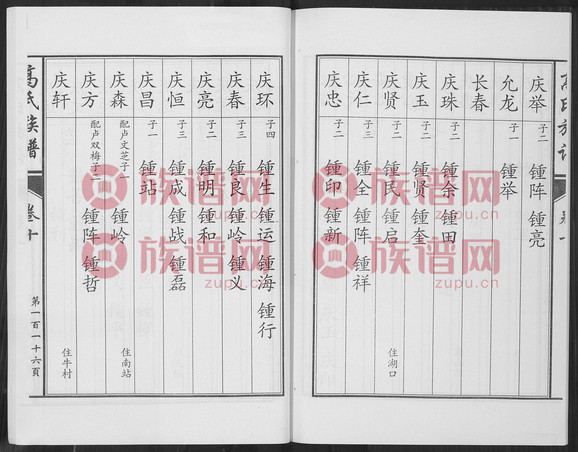 庆举 子二 锺阵 锺亮
允龙 子一 锺举
长春
庆珠 子二 锺余 锺田
庆玉 子二 锺贤 锺奎
庆贤 子二 锺民 锺启 住湖口
庆仁 子三 锺全 锺阵 锺祥
庆忠 子二 锺印 锺新
庆环 子四 锺生 锺运 锺海 锺行
庆春 子三 锺良 锺岭 锺义
庆亮 子二 锺明 锺和
庆恒 子三 锺成 锺战 锺磊
庆昌 子一 锺站
庆森 配卢文芝子一 锺岭 住南站
庆方 配卢双梅子二 锺阵 锺哲
庆轩 住牛村
高氏族谱
卷十
第一百一十六頁
族谱网
zupu.cn
族谱网
zupu.cn